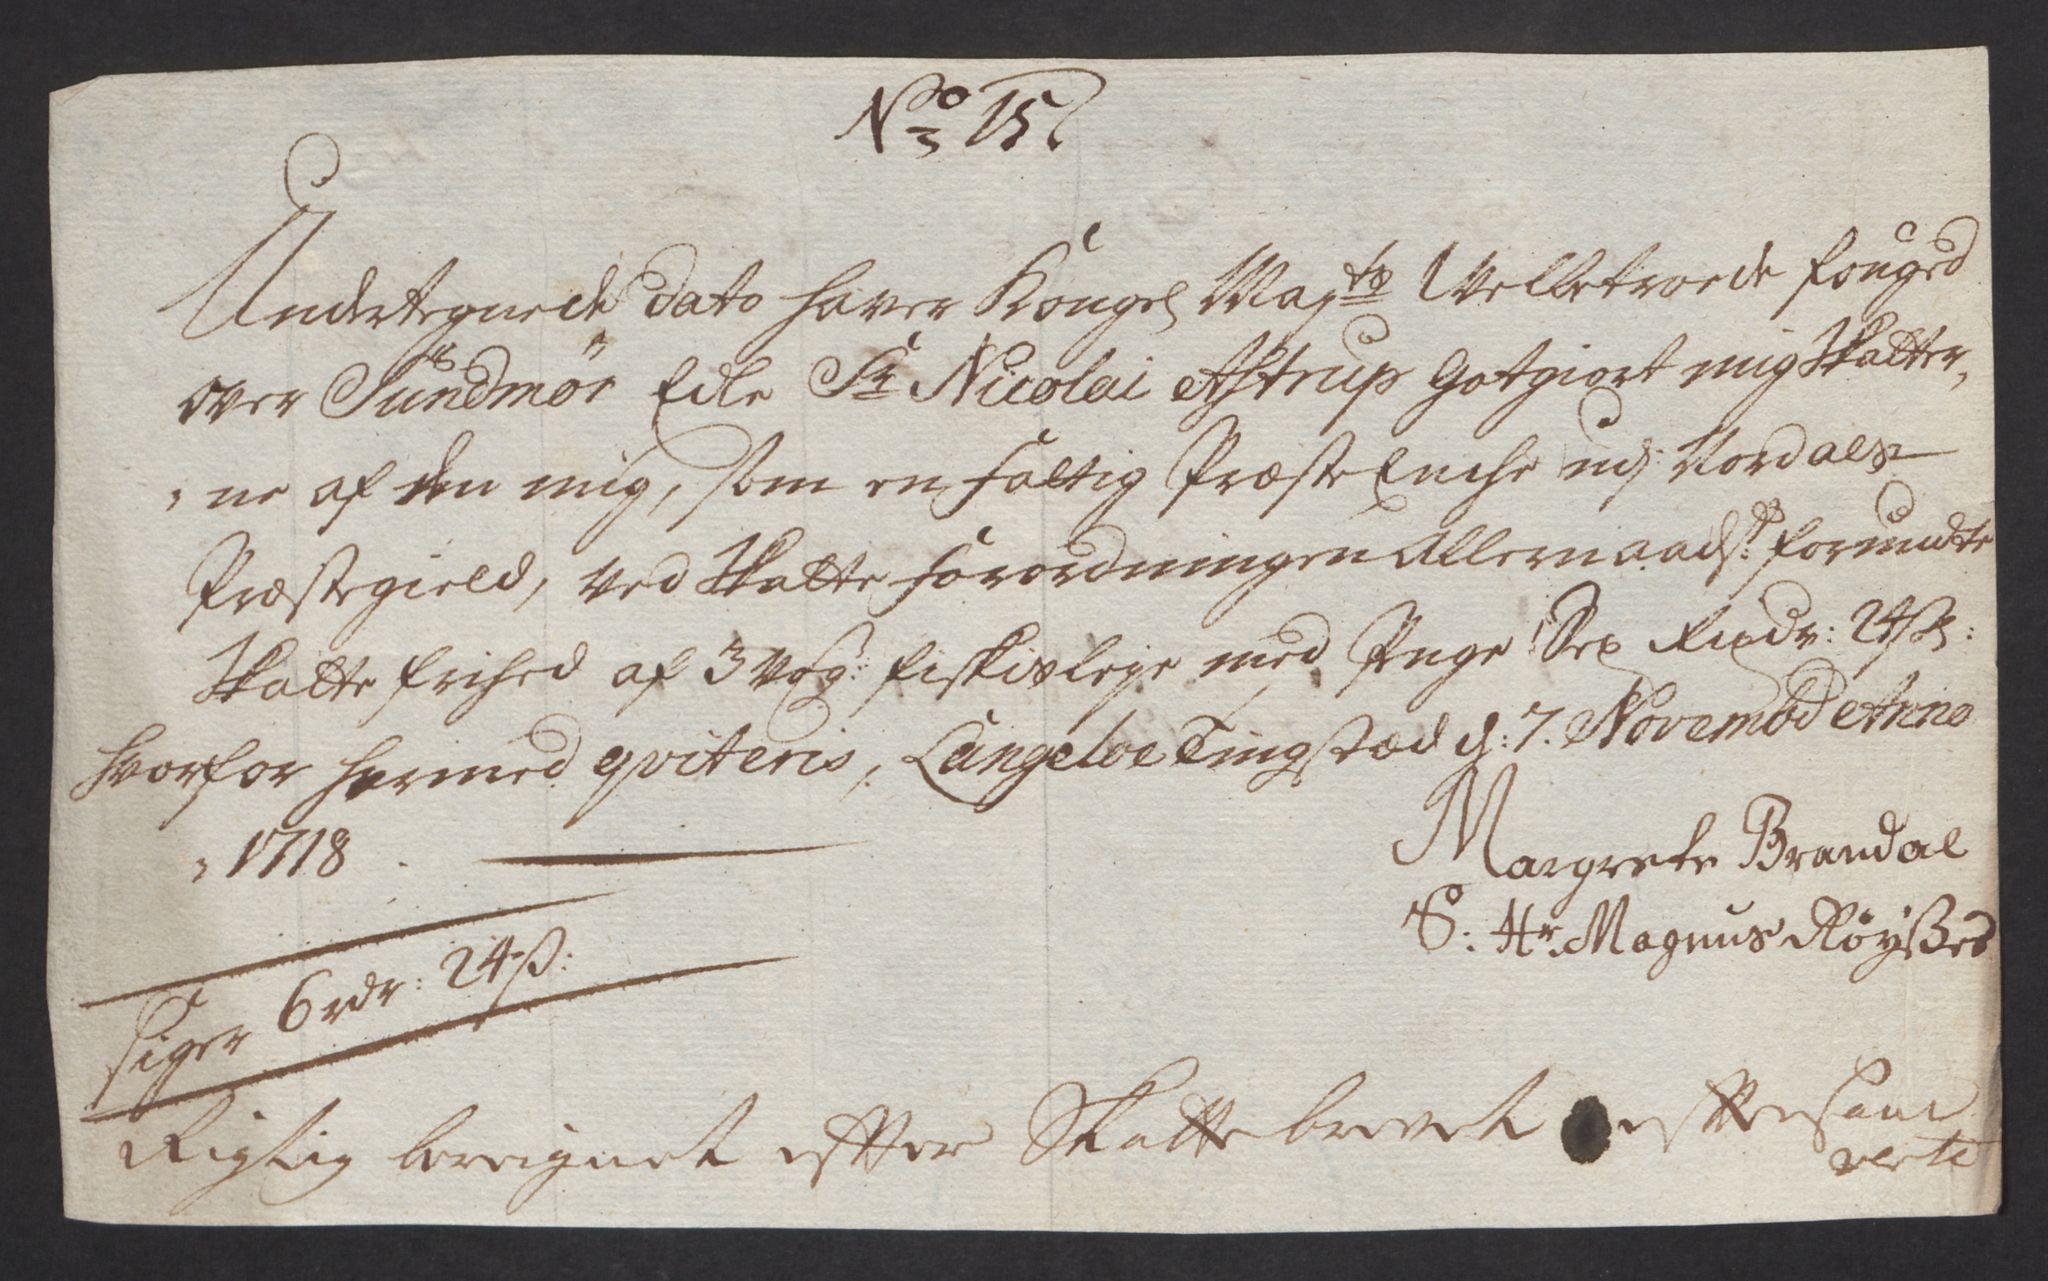 No 15
Undertegnede dato haver Kongel Majts Velbetroede fouged
over Sündmör Edle Sr Nicolai Astrup Gotgiort mig Skatter,
, ne af den mig, som en fattig Præste Enche udj Nordals
Præstegield, ved Skatte forordningen Allernaadst: forundte
Skatte frihed af 3 vog: fiskisleye med Penge Sex Rixdr: 24 sk:
hvorfor hermed qviteris, Langeloe Tingstæd d: 7. Novembd Anno
, 1718
Margrete Brandal
S: Hr. Magnus Røyβes
siger 6 rdr: 24 β:
Rigtig bereignet efter Skatte brevet
verte